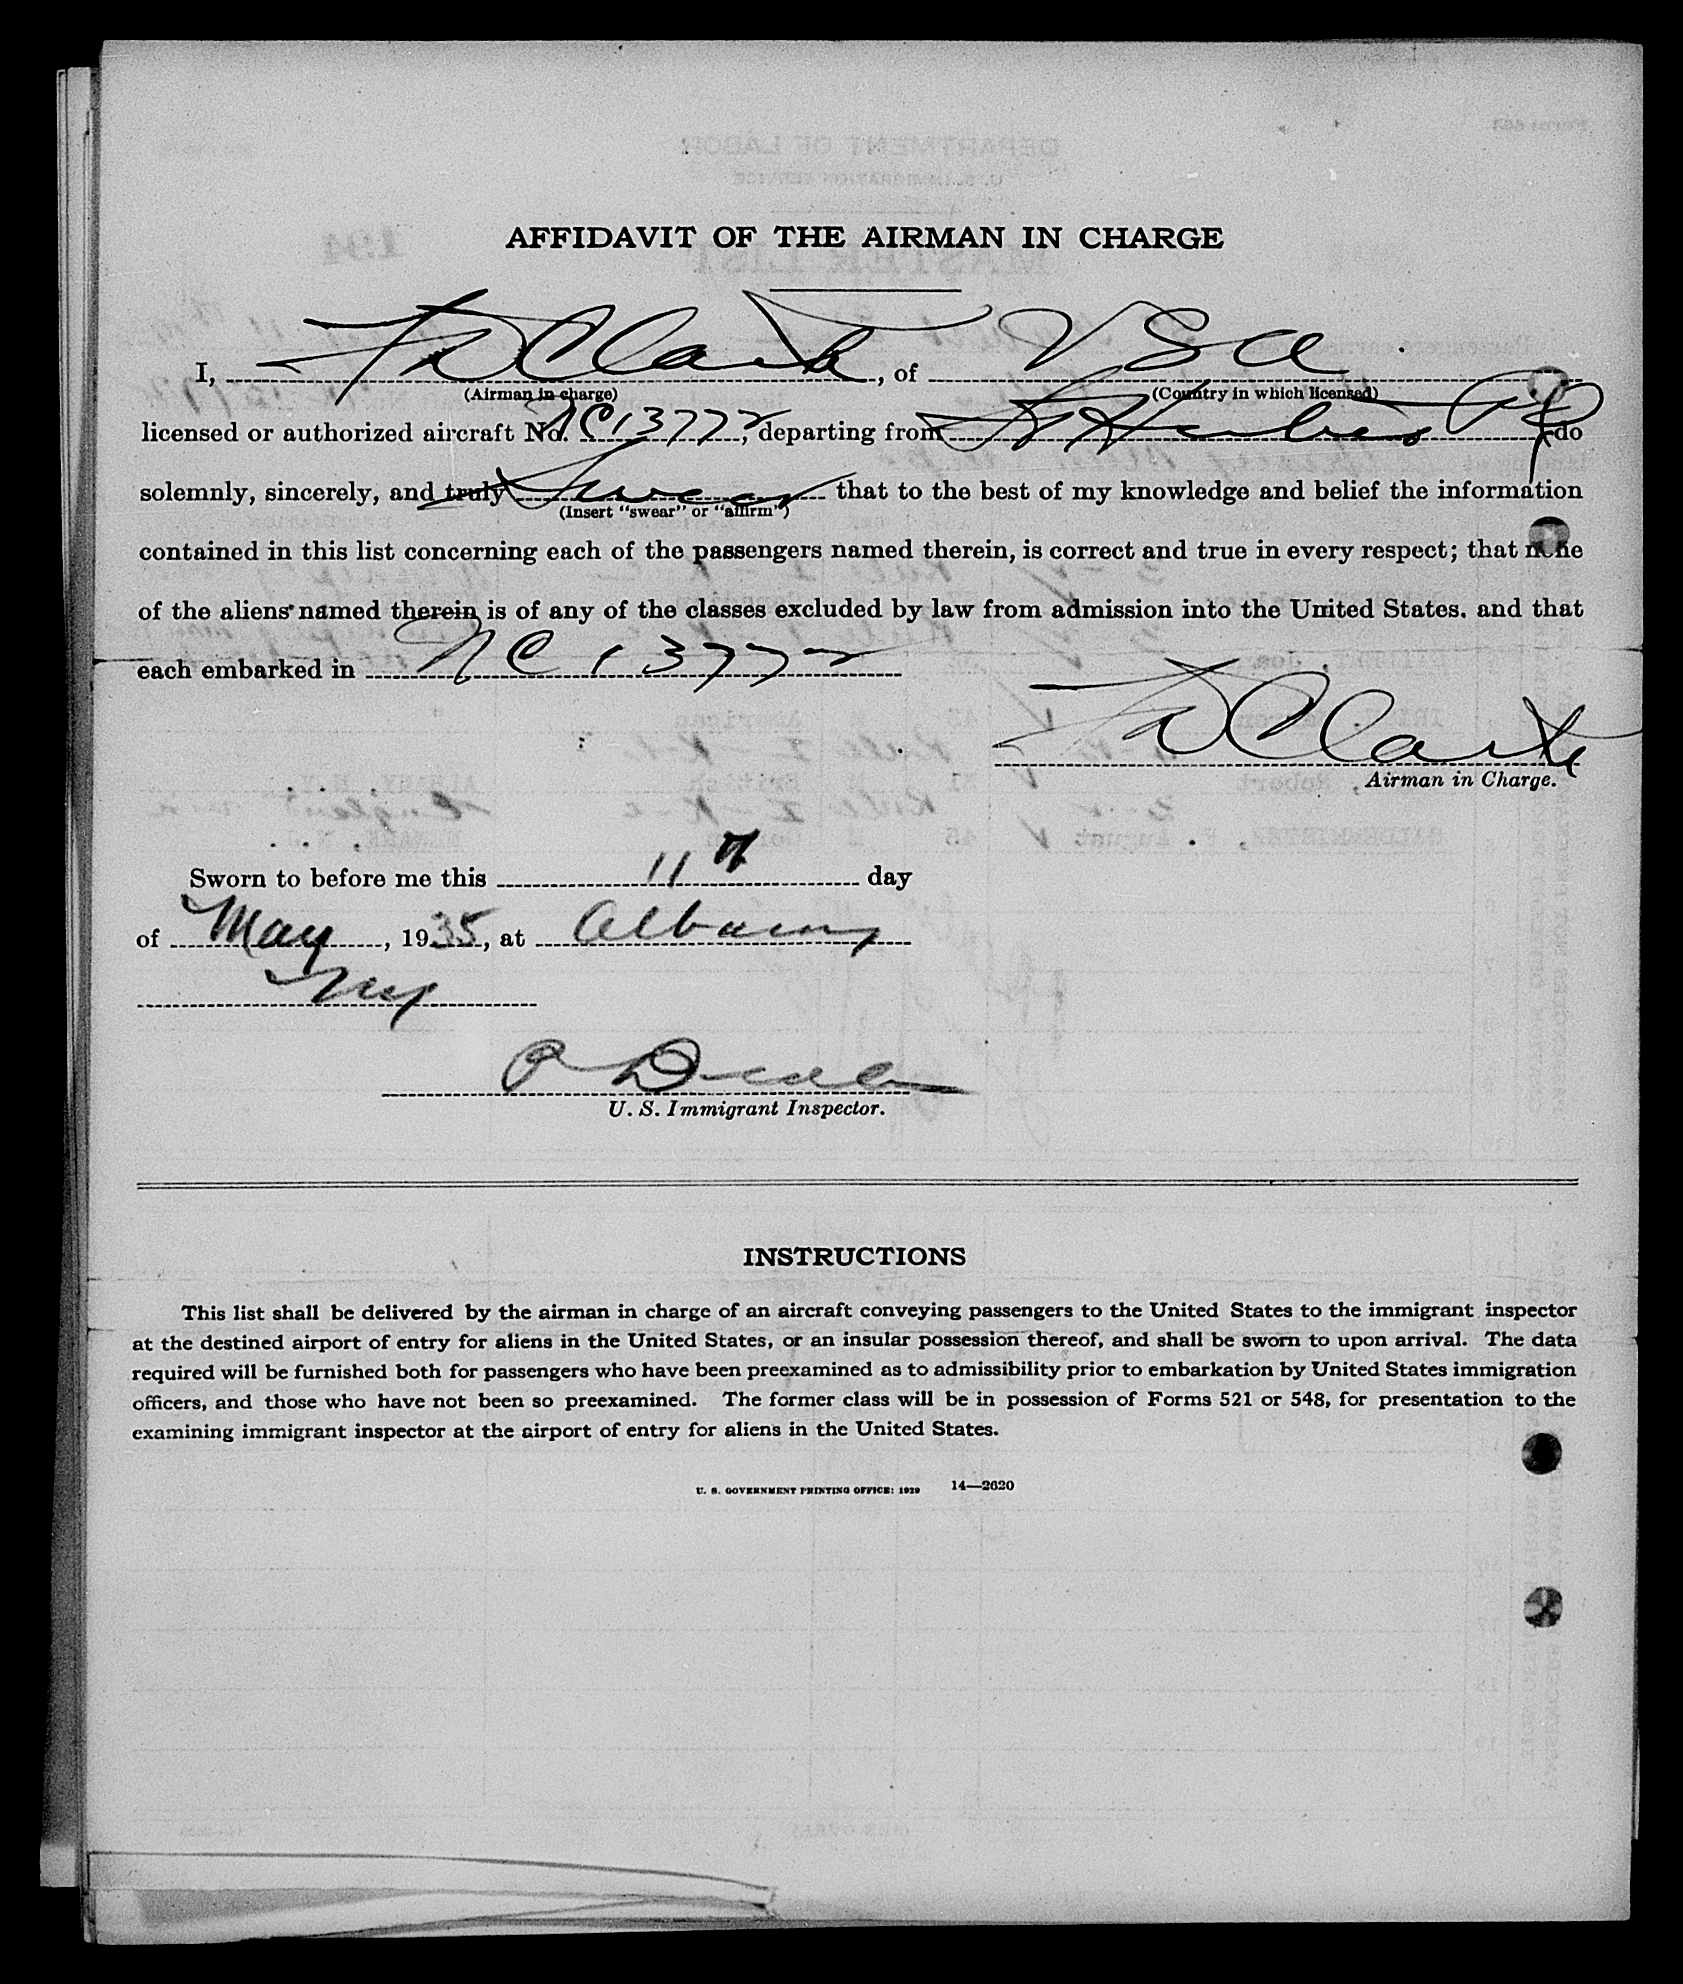 AFFIDAVIT OF THE AIRMAN IN CHARGE
I, Clark, of USA
(Airman in charge) (Country in which licensed)
licensed or authorized aircraft No. NC13772, departing from St Hubert PQ, do
solemnly, sincerely, and truly Swear that to the best of my knowledge and belief the information
(Insert "swear" or "affirm")
contained in this list concerning each of the passengers named therein, is correct and true in every respect; that none
of the aliens named therein is of any of the classes excluded by law from admission into the United States, and that
each embarked in NC13772
Clark
Airman in Charge.
Sworn to before me this 11th day
of May, 1935, at Albany
NY
U. S. Immigrant Inspector.
INSTRUCTIONS
This list shall be delivered by the airman in charge of an aircraft conveying passengers to the United States to the immigrant inspector
at the destined airport of entry for aliens in the United States, or an insular possession thereof, and shall be sworn to upon arrival. The data
required will be furnished both for passengers who have been preexamined as to admissibility prior to embarkation by United States immigration
officers, and those who have not been so preexamined. The former class will be in possession of Forms 521 or 548, for presentation to the
examining immigrant inspector at the airport of entry for aliens in the United States.
U. S. GOVERNMENT PRINTING OFFICE: 1929 14—2620